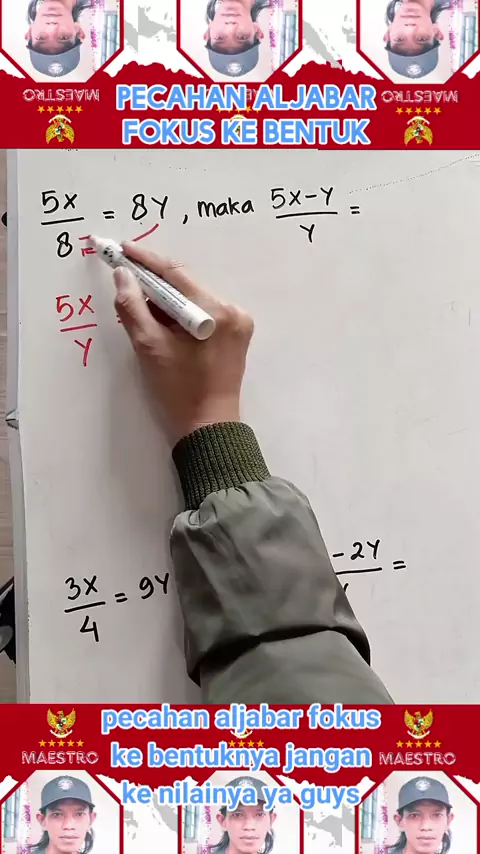 MAESTRO
MAESTRO
PECAHAN ALJABAR
FOKUS KE BENTUK
5X/8 = 8Y, maka 5X-Y/Y =
5X/Y
3X/4 = 9Y
-2Y
=
pecahan aljabar fokus
ke bentuknya jangan
ke nilainya ya guys
MAESTRO
MAESTRO